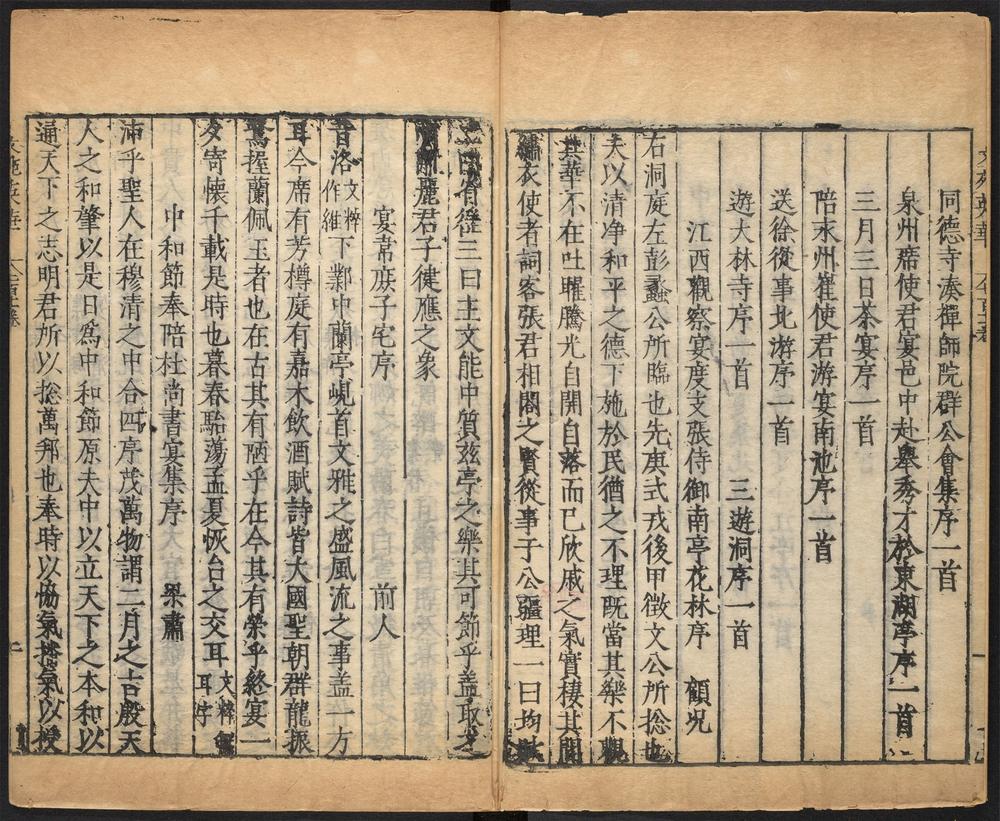 同德寺湊禪師院群公會集序一首
泉州席使君宴邑中赴舉秀才於東湖亭序一首
三月三日茶宴序一首
陪永州崔使君游宴南池序一首
送徐從事北游序一首
遊大林寺序一首 三遊洞序一首
江西觀察宴度支張侍御南亭花林序 顧况
右洞庭左彭蠡公所臨也先庚式戎後甲徵文公所捴也
夫以清净和平之德下施於民猶之不理既當其樂不觀
其華不在吐曜騰光自開自落而已欣戚之氣實棲其間
繡衣使者詞客張君相閣之賢從事子公疆理一曰均
二曰省徭三曰主文能中質兹亭之樂其可節乎盖取才
麗君子健應之象
宴韋庶子宅序 前人
昔洛文粹作維下鄴中蘭亭峴首文雅之盛風流之事盖一方
耳今席有芳樽庭有嘉木飲酒賦詩皆大國聖朝群龍振
鷺握蘭佩玉者也在古其有陋乎在今其有榮乎終宴一
夕寄懷千載是時也暮春駘蕩孟夏恢台之交耳文粹無耳字
中和節奉陪杜尚書宴集序 梁肅
沛乎聖人在穆清之中合四序茂萬物謂二月之吉殷天
人之和肇以是日爲中和節原夫中以立天下之本和以
通天下之志明君所以捴萬邦也奉時以恊氣播氣以授